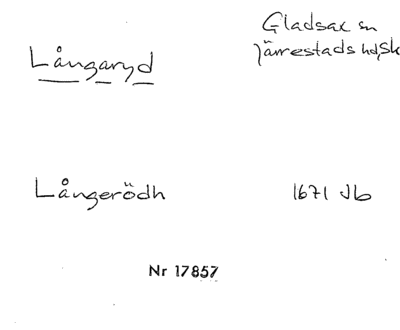 Långaryd
Gladsax sn
Järrestads hd, Sk
Långerödh
1671 Jb
Nr 17857